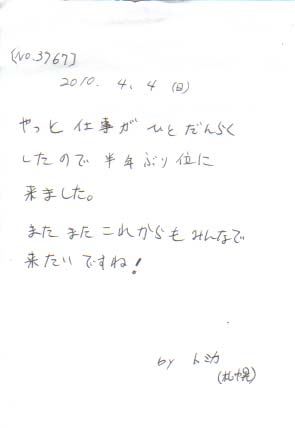 [No.3767]
2010. 4. 4 (日)
やっと 仕事が ひと だんらく
したので 半年ぶり位に
来ました。
まだ まだ これからも みんなで
来たい ですね!
by トミカ
(札幌)